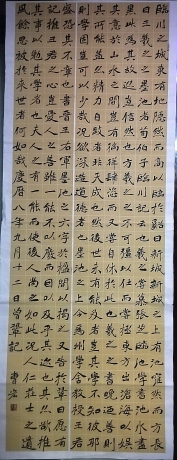 臨川之城東有地隱然而高以臨於谿曰新城新城之上有池窪然而方以長
曰王羲之之墨池者荀伯子臨川記云也羲之嘗慕張芝臨池學書池水盡
黑此為其故迹豈信然邪方羲之之不可強以仕而嘗極東方出滄海以娛
其意於山水之間豈其徜徉肆恣而又嘗自休於此邪羲之之書晚乃善則
其所能蓋亦以精力自致者非天成也然後世未有能及者豈其學不如彼邪
則學固豈可以少哉況欲深造道德者邪墨池之上今為州學舍教授王君
盛恐其不章也書晉王右軍墨池之六字於楹間以揭之又告於鞏曰願有
記推王君之心豈愛人之善雖一能不以廢而因以及乎其迹邪其亦欲推
其事以勉其學者邪夫人之有一能而使後人尚之如此況仁人莊士之遺
風餘思被於來世者何如哉慶曆八年九月十二日曾鞏記